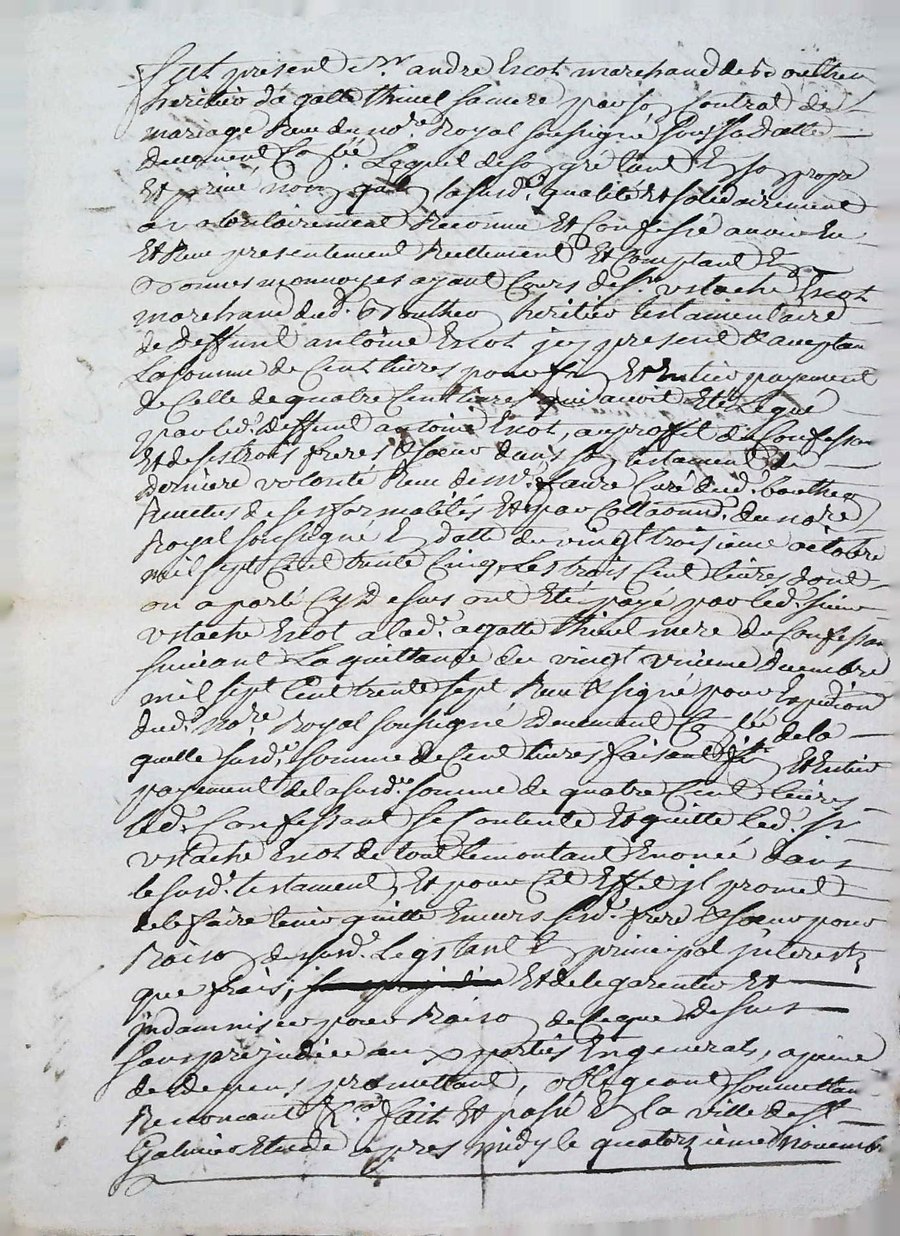 fut present Sr. andre Escot marchand de Boutheo
heritier dagatte thivel sa mere par son Contrat de
mariage Receu du nore. Royal soussigné sous sa datte
deuement Con.lée Lequel de son gré tant En son propre
Et privé nom que En la susd. qualité Et solidairement
a volontairement Reconnu Et Confessé avoir Eu
Et Receu presentement Reellement Et Comptant En
Bonnes monnoyes ayant Cours de Sr ustache Escot
marchand dud. Boutheo heritier testamentaire
de deffunt antoine Escot jcy present & aceptan
La somme de Cent livres pour fin Et Entier payement
de Celle de quatre Cent livres qui avoit Eté Legué
par led. deffunt antoine Escot, au proffit du Confessan
Et de ses trois freres & soeur dans son testament de
derniere volonté Receu de mre. faure Curé dud. boutheo
Revetues de ses formalités Et par Collaonné. du nore
Royal soussigné En datte du vingt troisieme octobre
mil sept Cent trente Cinq, Les trois Cent livres dont
on a parlé Cy dessus ont Eté payé par led. sieur
ustache Escot a lad. agatte thivel mere du Confessan
suivant La quittance du vingt unieme decembre
mil sept Cent trente sept Receu & signé pour Expedition
dud. Nore Royal soussigné deuement Con.lée de la
quelle susd. somme de Cent livres faisant fin Et Entier
payement de la susd. somme de quatre Cent livres
led. Confessant se Contente Et quitte led. Sr
ustache Escot de tout le montant Enoncé dans
le susd. testament, Et pour Cet Effet jl promet
de le faire tenir quitte Envers sesd. frere & soeur pour
Raison dususd. Legs tant En principal jnterests
que frais, Et de le garentir Et
jndamniser pour Raison de Ce que dessus
sans prejudice aux parties En general, a peine
de depens promettant, obligeant soumettan
Renoncant &ca fait Et passé En la ville de St
Galmier Etude apres midy le quatorzieme novemb.